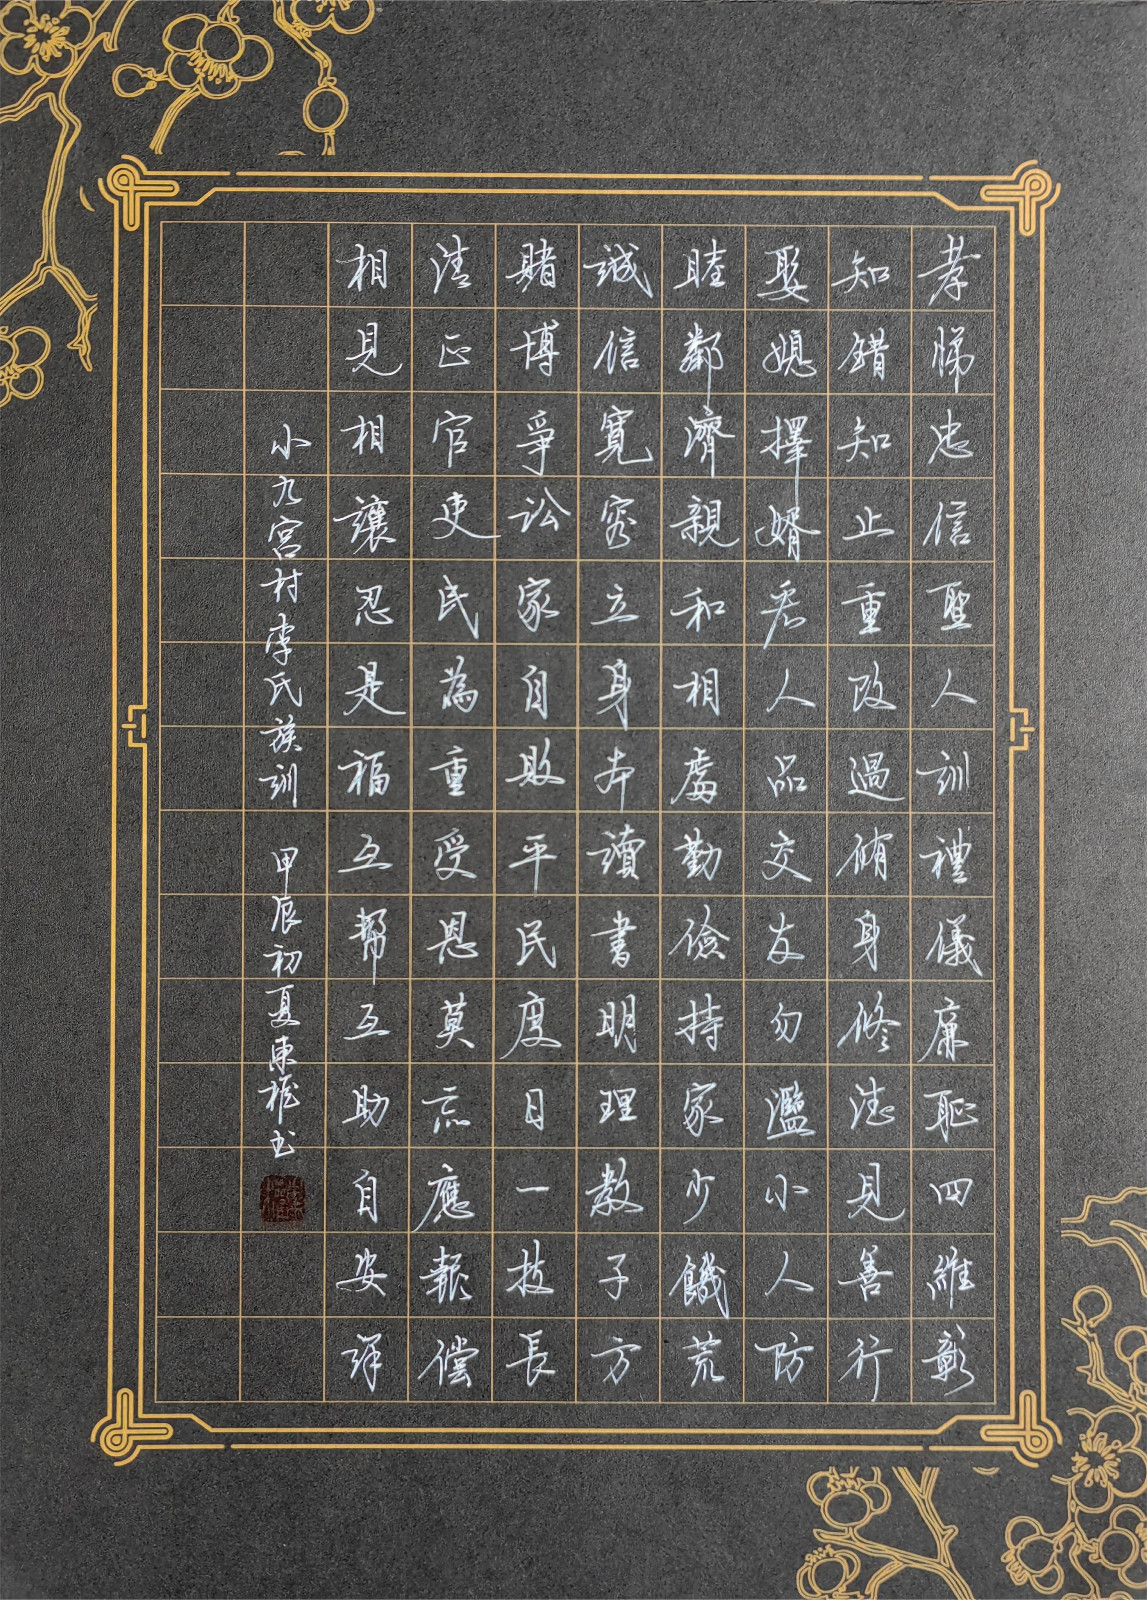 孝悌忠信聖人訓禮儀廉恥四維彰
知錯知止重改過脩身修德見善行
娶媳擇婿看人品交友勿濫小人防
睦鄰濟親和相處勤儉持家少饑荒
誠信寬容立身本讀書明理教子方
賭博爭訟家自敗平民度日一技長
清正官吏民為重受恩莫忘應報償
相見相讓忍是福互幫互助自安詳
小九宮村李氏族訓 甲辰初夏東樵书